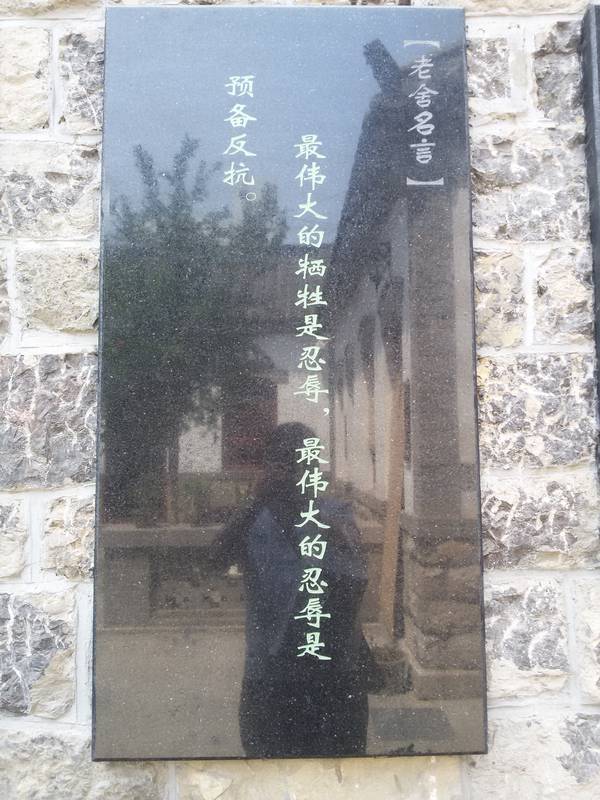 【老舍名言】
最伟大的牺牲是忍辱，最伟大的忍辱是
预备反抗。